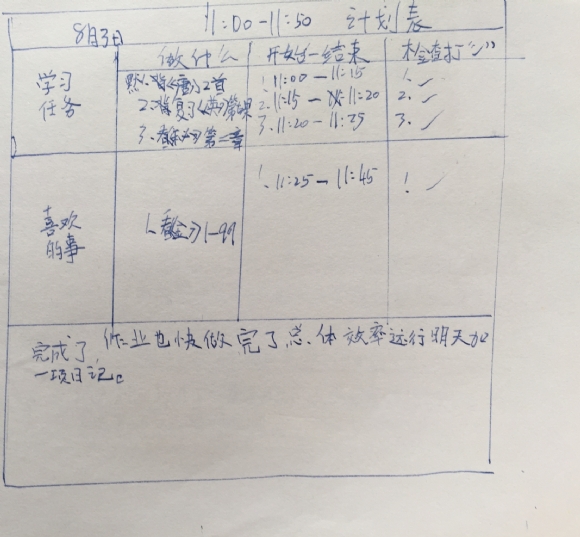 11:00-11:50 计划表
8月3日
做什么 开始—结束 检查打“✓”
学习
任务
2首 1.11:00—11:15 1.✓
2. 复习 2.11:15—11:20 2.✓
3. 第二章 3.11:20—11:25 3.✓
1.11:25—11:45 1 ✓
喜欢
的事
1.看 1-99
完成了,作业也快做完了,总体效率还行明天加
一项日记。